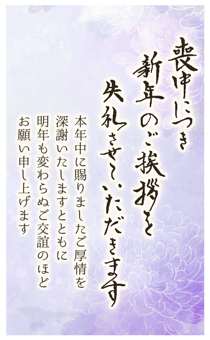 喪中につき
新年のご挨拶を
失礼させていただきます
本年中に賜りましたご厚情を
深謝いたしますとともに
明年も変わらぬご交誼のほど
お願い申し上げます